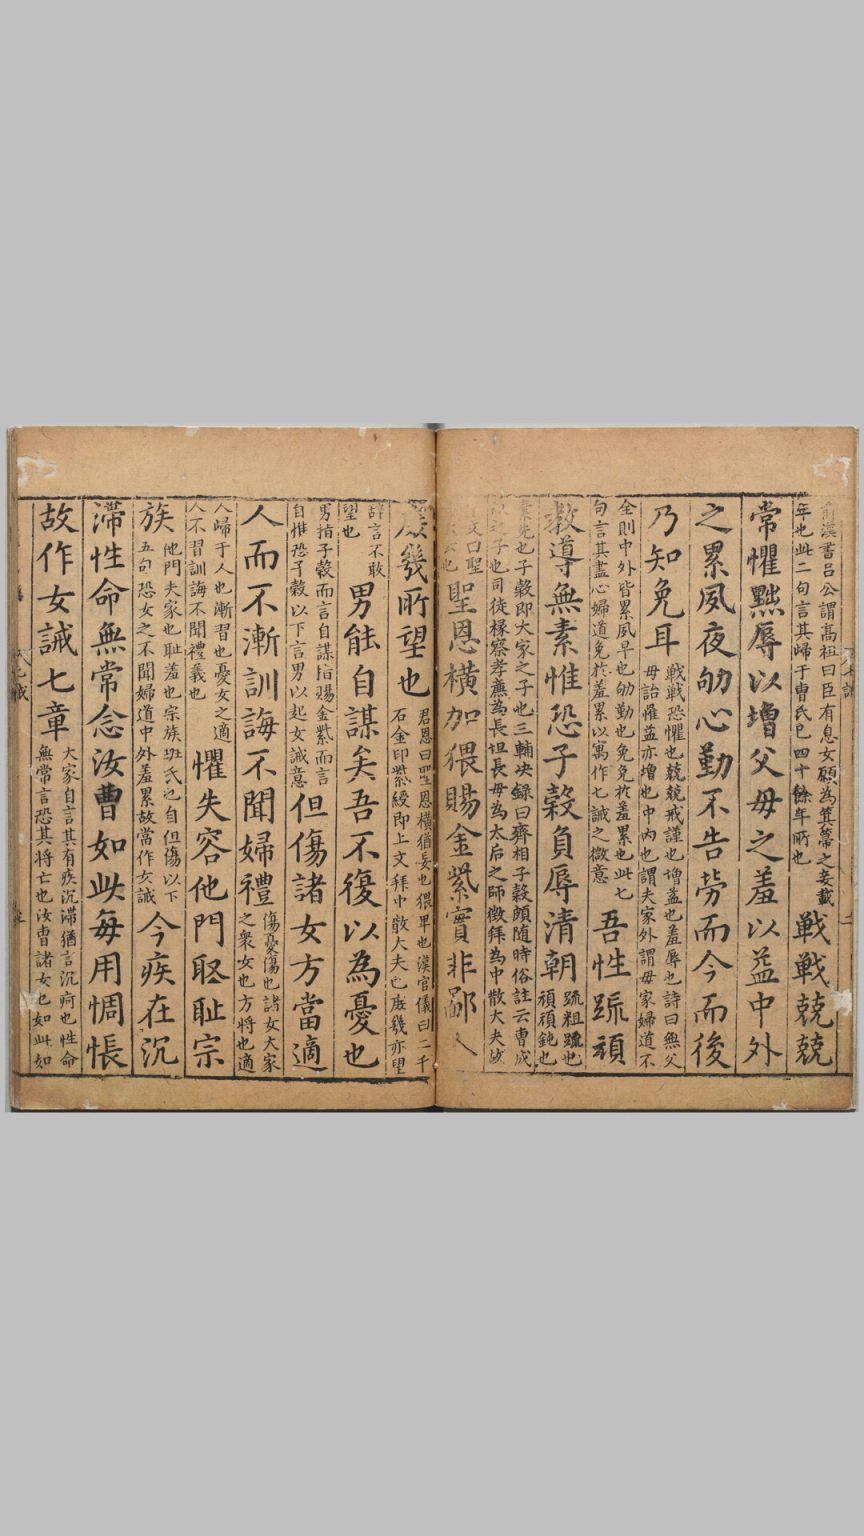 前漢書呂公謂高祖曰臣有息女願為箕箒之妾載
年也此二句言其歸于曹氏已四十餘年所也
戰戰兢兢
常懼黜辱以増父母之羞以益中外
之累夙夜劬心勤不告勞而今而後
乃知免耳
戰戰恐懼也兢兢戒謹也増益也羞辱也詩曰無父
母詒罹益亦増也中内也謂夫家外謂母家婦道不
全則中外皆累夙早也劬勤也免免於羞累也此七
句言其盡心婦道免於羞累以寓作七誡之微意
吾性踈頑
教導無素惟恐子穀負辱清朝
踈粗踈也
頑頑鈍也
素先也子穀即大家之子也三輔决録曰齊相子穀頗隨時俗註云曹成
之子也司徒掾察孝廉為長垣長母為太后之師徵拜為中散大夫故
文曰聖
也
聖恩橫加猥賜金紫實非鄙人
庶幾所望也
君恩曰聖恩橫猶妄也猥畢也漢官儀曰二千
石金印紫綬即上文拜中散大夫也庶幾亦望
辭言不敢
望也
男能自謀矣吾不復以為憂也
男指子穀而言自謀指賜金紫而言
自惟恐子穀以下言男以起女誡意
但傷諸女方當適
人而不漸訓誨不聞婦禮
傷憂傷也諸女大家
之衆女也方將也適
人歸于人也漸習也憂女之適
人不習訓誨不聞禮義也
懼失容他門取恥宗
族
他門夫家也恥羞也宗族班氏也自但傷以下
五句恐女之不聞婦道中外羞累故當作女誡
今疾在沉
滯性命無常念汝曹如此每用惆悵
故作女誡七章
大家自言其有疾沉滯猶言沉疴也性命
無常言恐其將亡也汝曹諸女也如此如